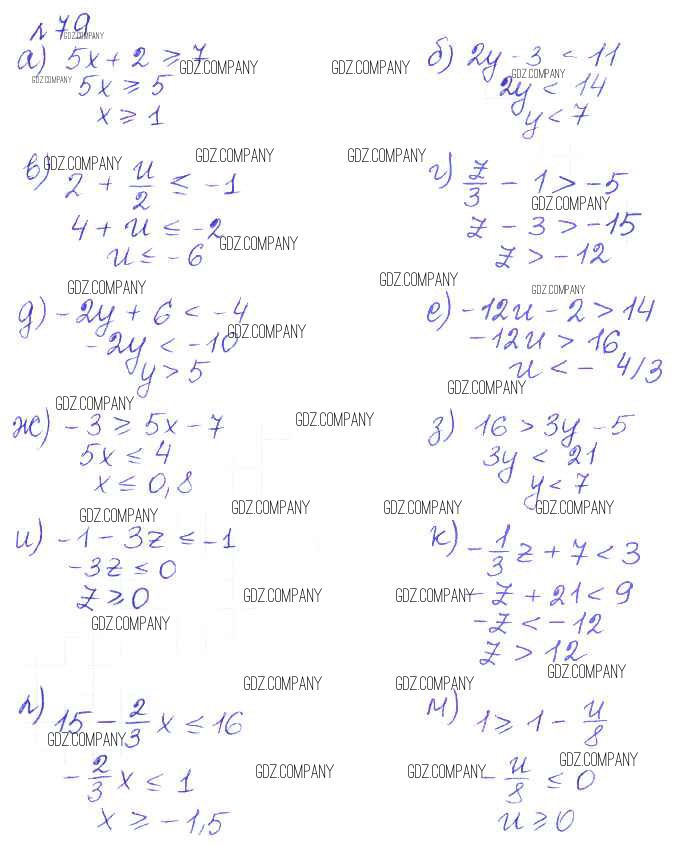 № 79
GDZ.COMPANY
а) 5x + 2 ≥ 7
GDZ.COMPANY
GDZ.COMPANY
5x ≥ 5
x ≥ 1
GDZ.COMPANY
б) 2y - 3 < 11
GDZ.COMPANY
2y < 14
y < 7
GDZ.COMPANY
GDZ.COMPANY
в) 2 + u/2 ≤ -1
4 + u ≤ -2
GDZ.COMPANY
u ≤ -6
GDZ.COMPANY
г) z/3 - 1 > -5
GDZ.COMPANY
z - 3 > -15
z > -12
GDZ.COMPANY
д) -2y + 6 < -4
GDZ.COMPANY
-2y < -10
y > 5
GDZ.COMPANY
GDZ.COMPANY
е) -12u - 2 > 14
-12u > 16
u < - 4/3
GDZ.COMPANY
GDZ.COMPANY
ж) -3 ≥ 5x - 7
5x ≤ 4
x ≤ 0,8
GDZ.COMPANY
з) 16 > 3y - 5
3y < 21
y < 7
GDZ.COMPANY
GDZ.COMPANY
GDZ.COMPANY
GDZ.COMPANY
и) -1 - 3z ≤ -1
-3z ≤ 0
z ≥ 0
GDZ.COMPANY
GDZ.COMPANY
к) -1/3 z + 7 < 3
GDZ.COMPANY
-z + 21 < 9
-z < -12
z > 12
GDZ.COMPANY
GDZ.COMPANY
GDZ.COMPANY
л) 15 - 2/3 x ≤ 16
GDZ.COMPANY
-2/3 x ≤ 1
GDZ.COMPANY
x ≥ -1,5
м) 1 ≥ 1 - u/8
GDZ.COMPANY
GDZ.COMPANY
-u/8 ≤ 0
u ≥ 0